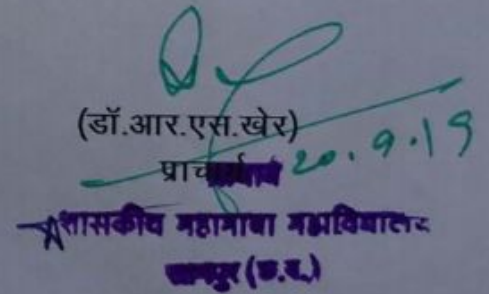 (डॉ.आर.एस.खेर)
प्राचार्य 20.9.19
शासकीय महामाया महाविद्यालय
(छ.ग.)